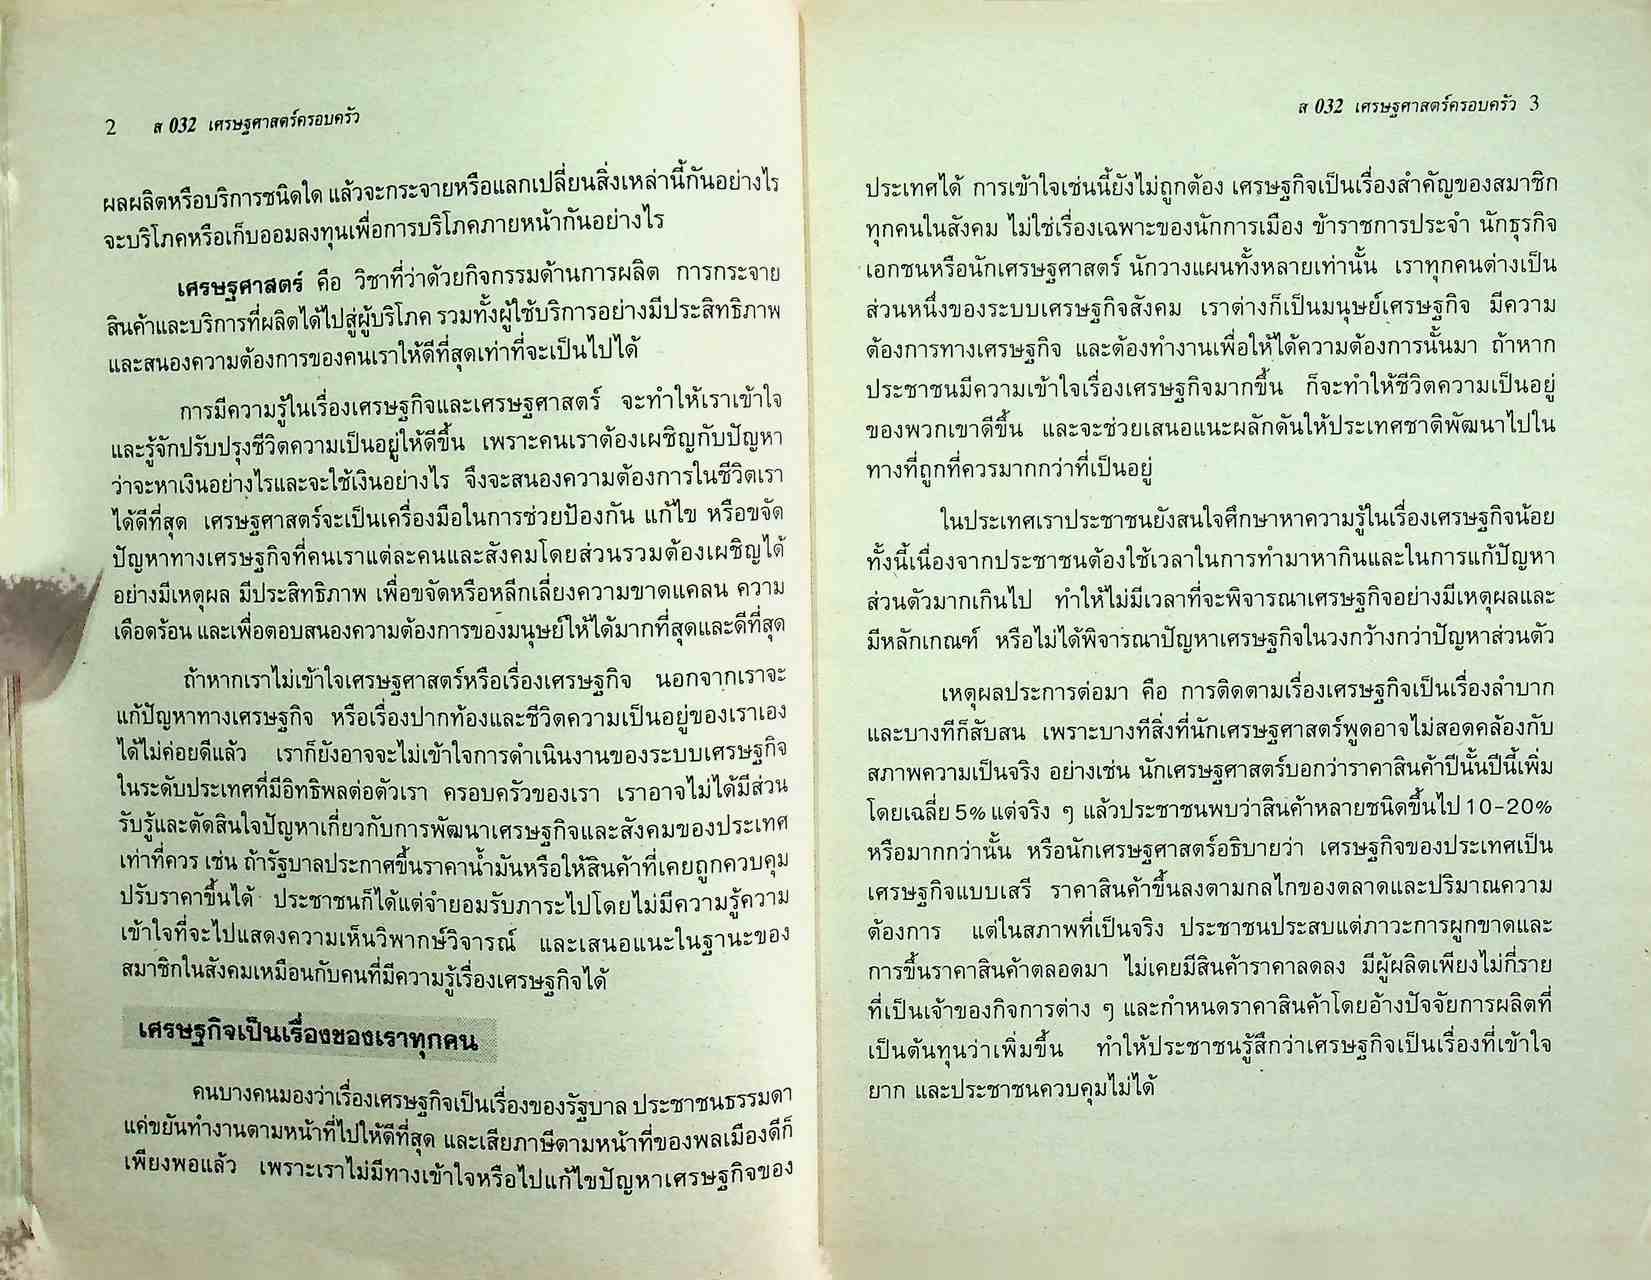 2 ส 032 เศรษฐศาสตร์ครอบครัว
ผลผลิตหรือบริการชนิดใด แล้วจะกระจายหรือแลกเปลี่ยนสิ่งเหล่านี้กันอย่างไร
จะบริโภคหรือเก็บออมลงทุนเพื่อการบริโภคภายหน้ากันอย่างไร
เศรษฐศาสตร์ คือ วิชาที่ว่าด้วยกิจกรรมด้านการผลิต การกระจาย
สินค้าและบริการที่ผลิตได้ไปสู่ผู้บริโภค รวมทั้งผู้ใช้บริการอย่างมีประสิทธิภาพ
และสนองความต้องการของคนเราให้ดีที่สุดเท่าที่จะเป็นไปได้
การมีความรู้ในเรื่องเศรษฐกิจและเศรษฐศาสตร์ จะทำให้เราเข้าใจ
และรู้จักปรับปรุงชีวิตความเป็นอยู่ให้ดีขึ้น เพราะคนเราต้องเผชิญกับปัญหา
ว่าจะหาเงินอย่างไรและจะใช้เงินอย่างไร จึงจะสนองความต้องการในชีวิตเรา
ได้ดีที่สุด เศรษฐศาสตร์จะเป็นเครื่องมือในการช่วยป้องกัน แก้ไข หรือขจัด
ปัญหาทางเศรษฐกิจที่คนเราแต่ละคนและสังคมโดยส่วนรวมต้องเผชิญได้
อย่างมีเหตุผล มีประสิทธิภาพ เพื่อขจัดหรือหลีกเลี่ยงความขาดแคลน ความ
เดือดร้อน และเพื่อตอบสนองความต้องการของมนุษย์ให้ได้มากที่สุดและดีที่สุด
ถ้าหากเราไม่เข้าใจเศรษฐศาสตร์หรือเรื่องเศรษฐกิจ นอกจากเราจะ
แก้ปัญหาทางเศรษฐกิจ หรือเรื่องปากท้องและชีวิตความเป็นอยู่ของเราเอง
ได้ไม่ค่อยดีแล้ว เราก็ยังอาจจะไม่เข้าใจการดำเนินงานของระบบเศรษฐกิจ
ในระดับประเทศที่มีอิทธิพลต่อตัวเรา ครอบครัวของเรา เราอาจไม่ได้มีส่วน
รับรู้และตัดสินใจปัญหาเกี่ยวกับการพัฒนาเศรษฐกิจและสังคมของประเทศ
เท่าที่ควร เช่น ถ้ารัฐบาลประกาศขึ้นราคาน้ำมันหรือให้สินค้าที่เคยถูกควบคุม
ปรับราคาขึ้นได้ ประชาชนก็ได้แต่จำยอมรับภาระไปโดยไม่มีความรู้ความ
เข้าใจที่จะไปแสดงความเห็นวิพากษ์วิจารณ์ และเสนอแนะในฐานะของ
สมาชิกในสังคมเหมือนกับคนที่มีความรู้เรื่องเศรษฐกิจได้
เศรษฐกิจเป็นเรื่องของเราทุกคน
คนบางคนมองว่าเรื่องเศรษฐกิจเป็นเรื่องของรัฐบาล ประชาชนธรรมดา
แค่ขยันทำงานตามหน้าที่ไปให้ดีที่สุด และเสียภาษีตามหน้าที่ของพลเมืองดีก็
เพียงพอแล้ว เพราะเราไม่มีทางเข้าใจหรือไปแก้ไขปัญหาเศรษฐกิจของ
ส 032 เศรษฐศาสตร์ครอบครัว 3
ประเทศได้ การเข้าใจเช่นนี้ยังไม่ถูกต้อง เศรษฐกิจเป็นเรื่องสำคัญของสมาชิก
ทุกคนในสังคม ไม่ใช่เรื่องเฉพาะของนักการเมือง ข้าราชการประจำ นักธุรกิจ
เอกชนหรือนักเศรษฐศาสตร์ นักวางแผนทั้งหลายเท่านั้น เราทุกคนต่างเป็น
ส่วนหนึ่งของระบบเศรษฐกิจสังคม เราต่างก็เป็นมนุษย์เศรษฐกิจ มีความ
ต้องการทางเศรษฐกิจ และต้องทำงานเพื่อให้ได้ความต้องการนั้นมา ถ้าหาก
ประชาชนมีความเข้าใจเรื่องเศรษฐกิจมากขึ้น ก็จะทำให้ชีวิตความเป็นอยู่
ของพวกเขาดีขึ้น และจะช่วยเสนอแนะผลักดันให้ประเทศชาติพัฒนาไปใน
ทางที่ถูกที่ควรมากกว่าที่เป็นอยู่
ในประเทศเราประชาชนยังสนใจศึกษาหาความรู้ในเรื่องเศรษฐกิจน้อย
ทั้งนี้เนื่องจากประชาชนต้องใช้เวลาในการทำมาหากินและในการแก้ปัญหา
ส่วนตัวมากเกินไป ทำให้ไม่มีเวลาที่จะพิจารณาเศรษฐกิจอย่างมีเหตุผลและ
มีหลักเกณฑ์ หรือไม่ได้พิจารณาปัญหาเศรษฐกิจในวงกว้างกว่าปัญหาส่วนตัว
เหตุผลประการต่อมา คือ การติดตามเรื่องเศรษฐกิจเป็นเรื่องลำบาก
และบางทีก็สับสน เพราะบางทีสิ่งที่นักเศรษฐศาสตร์พูดอาจไม่สอดคล้องกับ
สภาพความเป็นจริง อย่างเช่น นักเศรษฐศาสตร์บอกว่าราคาสินค้าปีนั้นปีนี้เพิ่ม
โดยเฉลี่ย 5% แต่จริง ๆ แล้วประชาชนพบว่าสินค้าหลายชนิดขึ้นไป 10-20%
หรือมากกว่านั้น หรือนักเศรษฐศาสตร์อธิบายว่า เศรษฐกิจของประเทศเป็น
เศรษฐกิจแบบเสรี ราคาสินค้าขึ้นลงตามกลไกของตลาดและปริมาณความ
ต้องการ แต่ในสภาพที่เป็นจริง ประชาชนประสบแต่ภาวะการผูกขาดและ
การขึ้นราคาสินค้าตลอดมา ไม่เคยมีสินค้าราคาลดลง มีผู้ผลิตเพียงไม่กี่ราย
ที่เป็นเจ้าของกิจการต่าง ๆ และกำหนดราคาสินค้าโดยอ้างปัจจัยการผลิตที่
เป็นต้นทุนว่าเพิ่มขึ้น ทำให้ประชาชนรู้สึกว่าเศรษฐกิจเป็นเรื่องที่เข้าใจ
ยาก และประชาชนควบคุมไม่ได้